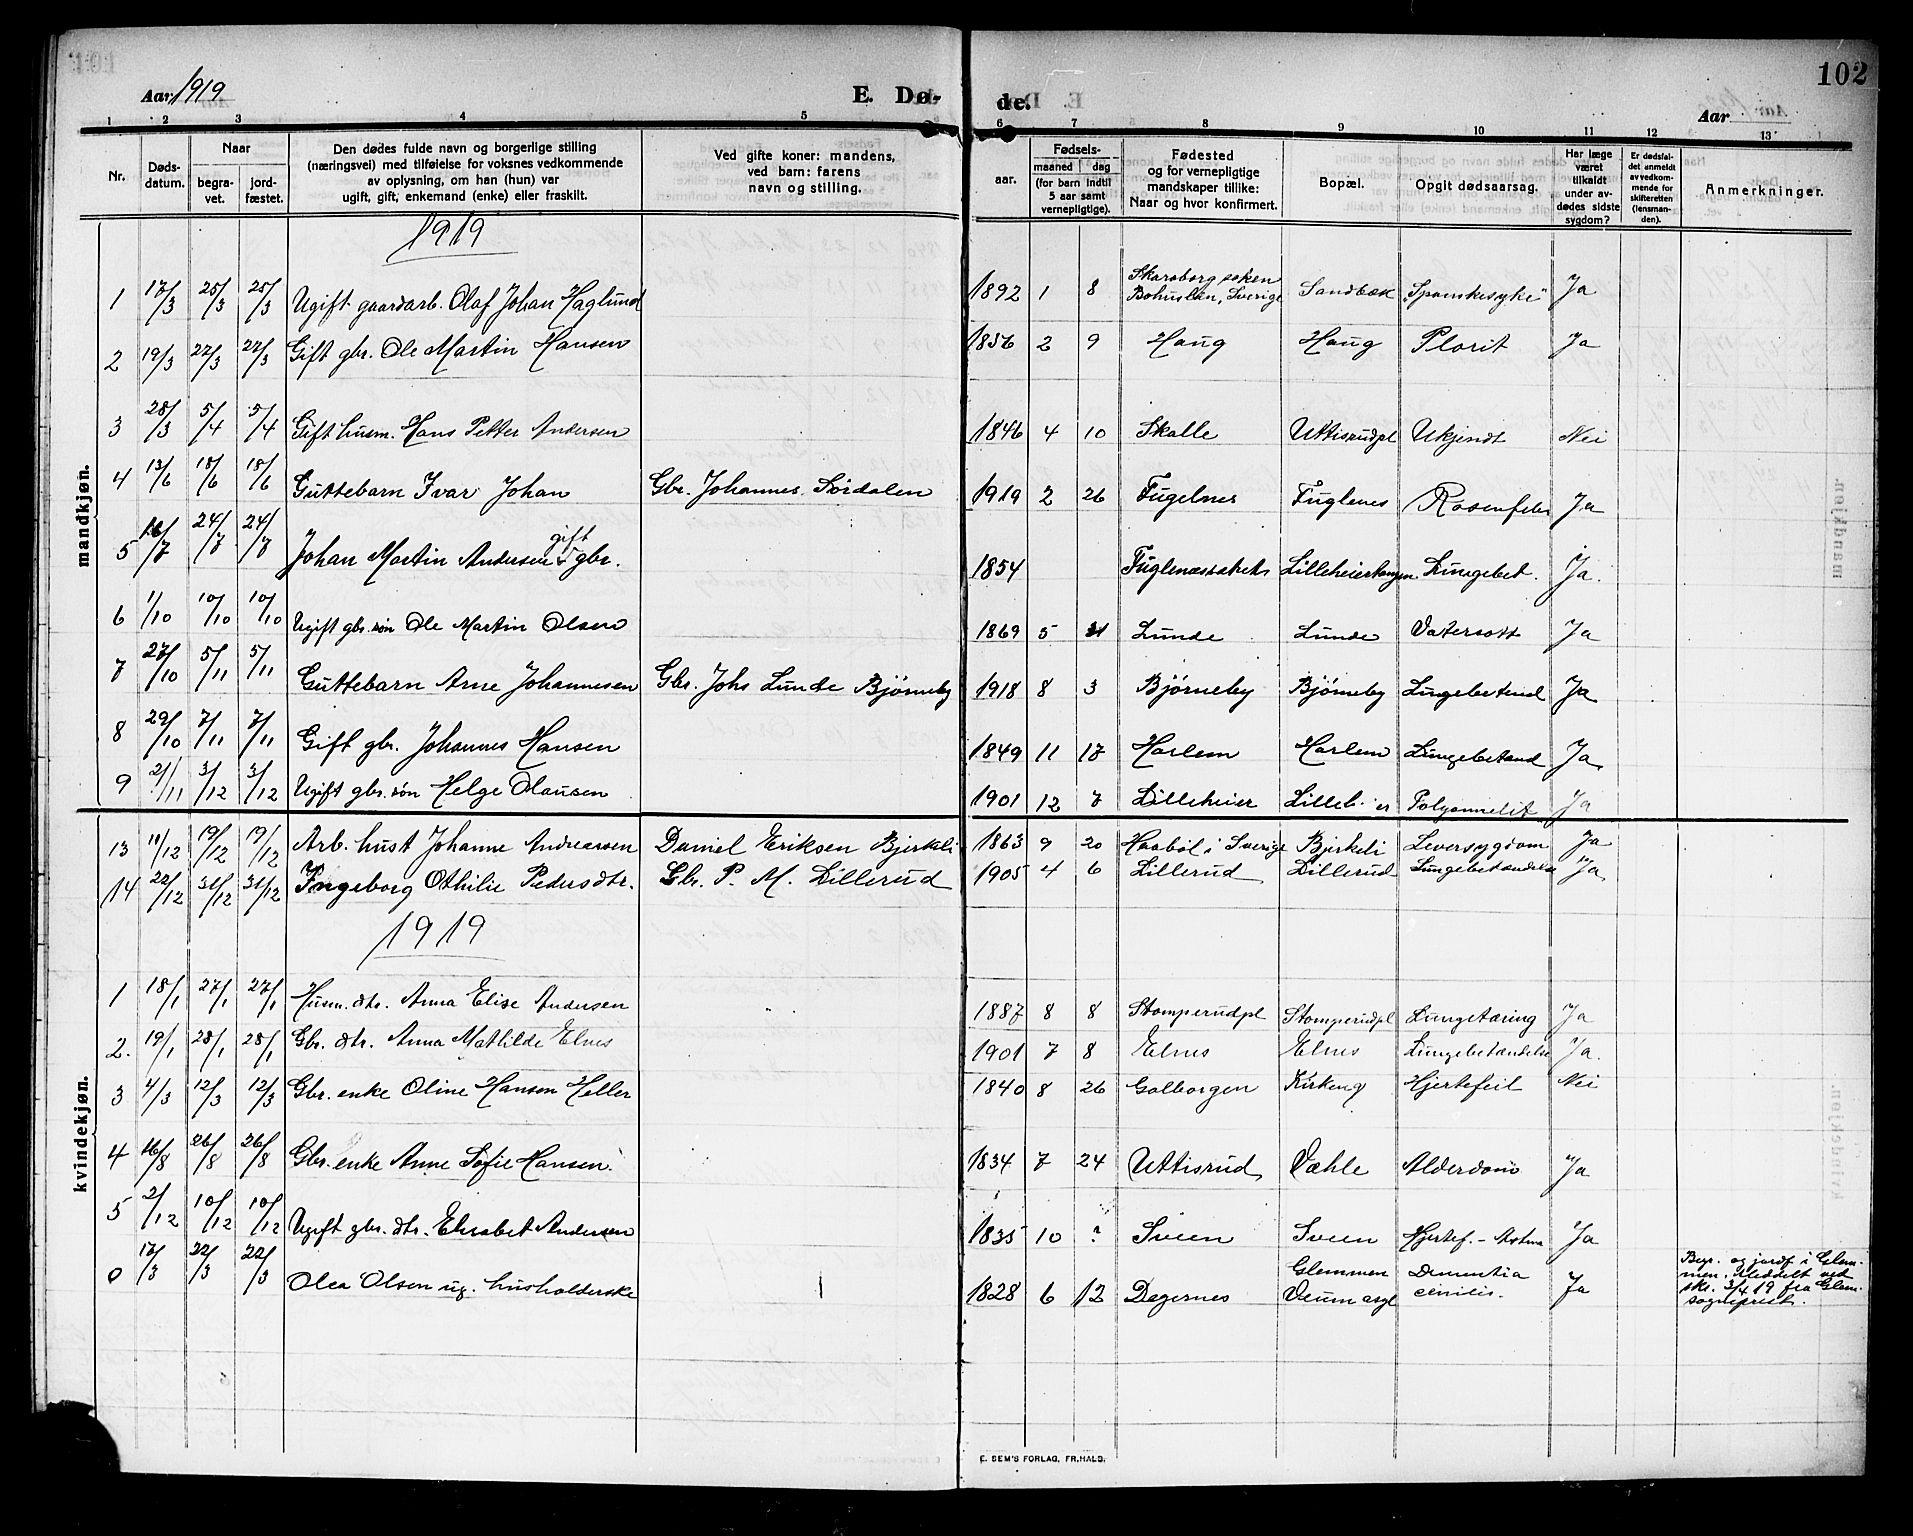 102
Aar 1919 E. Dø- de. Aar
1 2 3 4 5 6 7 8 9 10 11 12 13
Nr.
Døds-
datum.
Naar
begra-
vet.
jord-
fæstet.
Den dødes fulde navn og borgerlige stilling
(næringsvei) med tilføielse for voksnes vedkommende
av oplysning, om han (hun) var
ugift, gift, enkemand (enke) eller fraskilt.
Ved gifte koner: mandens,
ved barn: farens
navn og stilling.
Fødsels-
aar. maaned dag
(for barn indtil
5 aar samt
vernepligtige).
Fødested
og for vernepligtige
mandskaper tillike:
Naar og hvor konfirmert.
Bopæl.
Opgit dødsaarsag.
Har læge
været
tilkaldt
under av-
dødes sidste
sygdom?
Er dødsfal-
det anmeldt
av vedkom-
mende for
skifteretten
(lensman-
den).
Anmerkninger.
mandkjøn.
1919
1 17/3 25/3 25/3 Ugift gaardarb. Olaf Johan Haglund 1892 1 8 Skaraborg soken
Bohuslän, Sverige Sandbæk "Spanskesyke" Ja
2 19/3 27/3 27/3 Gift gbr. Ole Martin Hansen 1856 2 9 Haug Haug Plorit Ja
3 28/3 5/4 5/4 Gift husm. Hans Petter Andersen 1846 4 10 Skolle Uttisrudpl Ukjendt Nei
4 13/6 18/6 18/6 Guttebarn Ivar Johan Gbr. Johannes Sørdalen 1919 2 26 Fugelnes Fuglenes Rosenfeber Ja
5 16/7 24/7 24/7 Johan Martin Andersen gift gbr. 1854 Lilleheier Lungebet. Ja.
6 1/10 10/10 10/10 Ugift gbr. søn Ole Martin Olsen 1869 5 Lunde Lunde Vatersott Ja
7 27/10 5/11 5/11 Guttebarn Arne Johannesen Gbr. Johs Lunde Bjørneby 1918 8 3 Bjørneby Bjørneby Lungebetend Ja
8 29/10 7/11 7/11 Gift gbr. Johannes Hansen 1849 11 17 Harlem Harlem Lungebetænd Ja
9 2/11 3/12 3/12 Ugift gbr. søn Helge Olausen 1901 12 7 Lilleheier Ja
13 11/12 19/12 19/12 Arb. hust Johanne Andreassen Daniel Eriksen Bjerkeli 1863 9 20 Haabøl i Sverige Bjerkeli Leversygdom Ja
14 22/12 31/12 31/12 Ingeborg Othilie Pedersdtr. Gbr. P. M. Lillerud 1905 4 6 Lillerud Lillerud Lungebetændelse Ja
kvindekjøn.
1919
1 18/1 27/1 27/1 Husm. dtr. Anna Elise Andersen 1887 8 8 Stomperudpl Stomperudpl Lungetæring Ja
2. 19/1 28/1 28/1 Gbr. dtr. Anna Mathilde Elnes 1901 7 8 Elnes Elnes Lungebetændelse Ja.
3 4/3 12/3 12/3 Gbr. enke Oline Hansen Heller 1840 8 26 Golborgen Kirkeng Hjertefeil Nei
4 16/8 26/8 26/8 Gbr. enke Anne Sofie Hansen. 1834 7 24 Uttisrud Væhle Alderdom Ja
5 2/12 10/12 10/12 Ugift gbr. dtr. Elisabet Andersen 1835 10 ? Sveen Sveen Hjertef. - Astma Ja
0 17/3 22/3 22/3 Olea Olsen ug. husholderske 1828 6 12 Degernes Glemmen
Veum asyl Dementia
cenilis. Ja Begr. og jordf i Glem-
men. Meddelt ved
skr. 3/4 19 fra Glem.
sogneprest.
E. SEM'S FORLAG, FR.HALD.